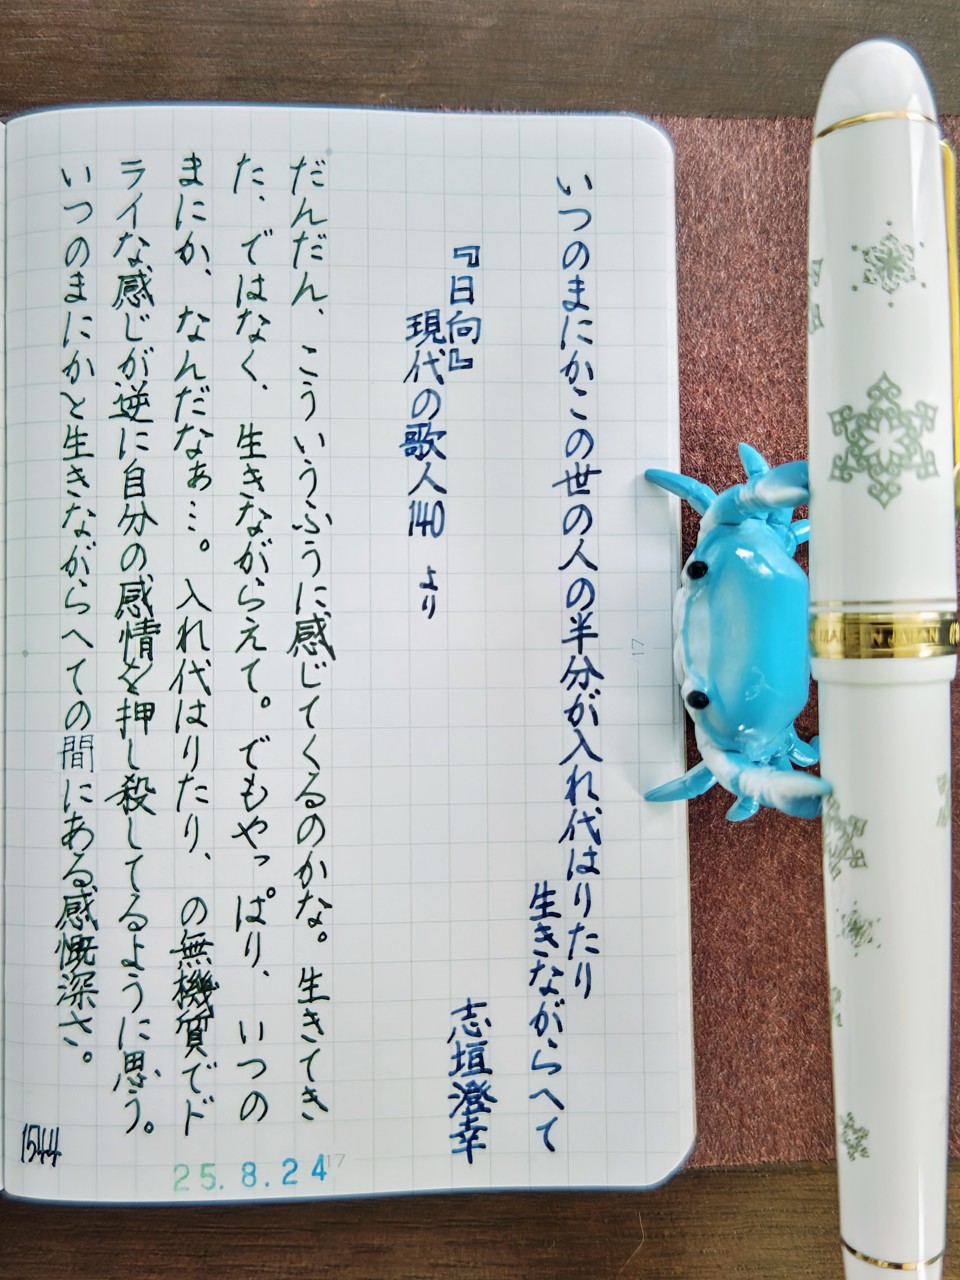 いつのまにかこの世の人の半分が入れ代はりたり
生きながらへて
志垣澄幸
『日向』
現代の歌人140 より
だんだん、こういうふうに感じてくるのかな。生きてき
た、ではなく、生きながらえて。でもやっぱり、いつの
まにか、なんだなぁ…。入れ代はりたり、の無機質でド
ライな感じが逆に自分の感情を押し殺してるように思う。
いつのまにかと生きながらへての間にある感慨深さ。
1544
25.8.24
17
17
MADE IN JAPAN